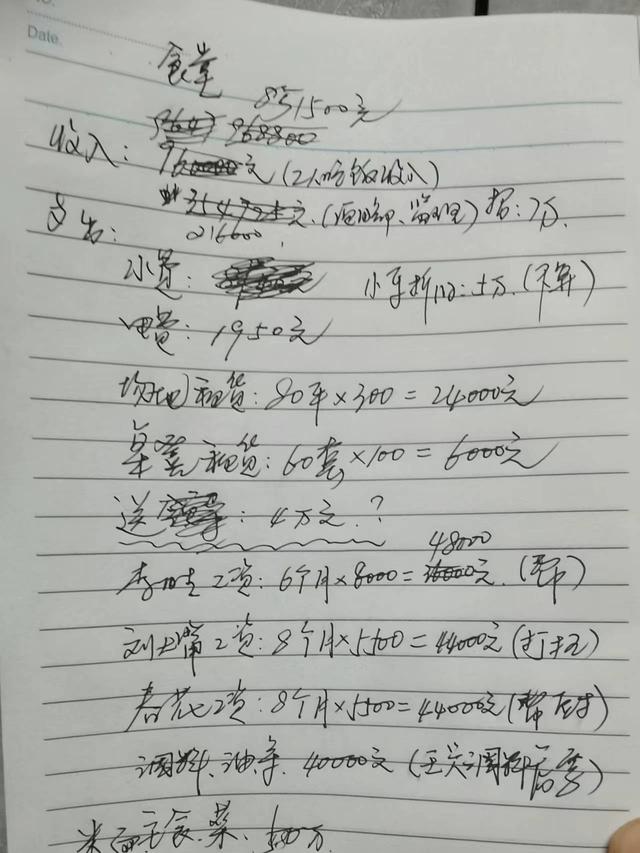 Date.
食堂
851500元
968800
收入: 960000元(工人吃饭收入)
支出: 354725元.(项目部、监理)招:7万.
216000.
水费: 小车折旧:5万.(不算)
电费: 1950元
场地租赁: 80平×300=24000元
桌凳租赁: 60套×100=6000元
送: 4万元.?
48000
工资: 6个月×8000=元.(帮)
刘大嘴工资: 8个月×5500=44000元(打扫)
春花工资: 8个月×5500=44000元(帮厨)
调料、油等. 40000元(王关调料店要)
米面主食.菜.